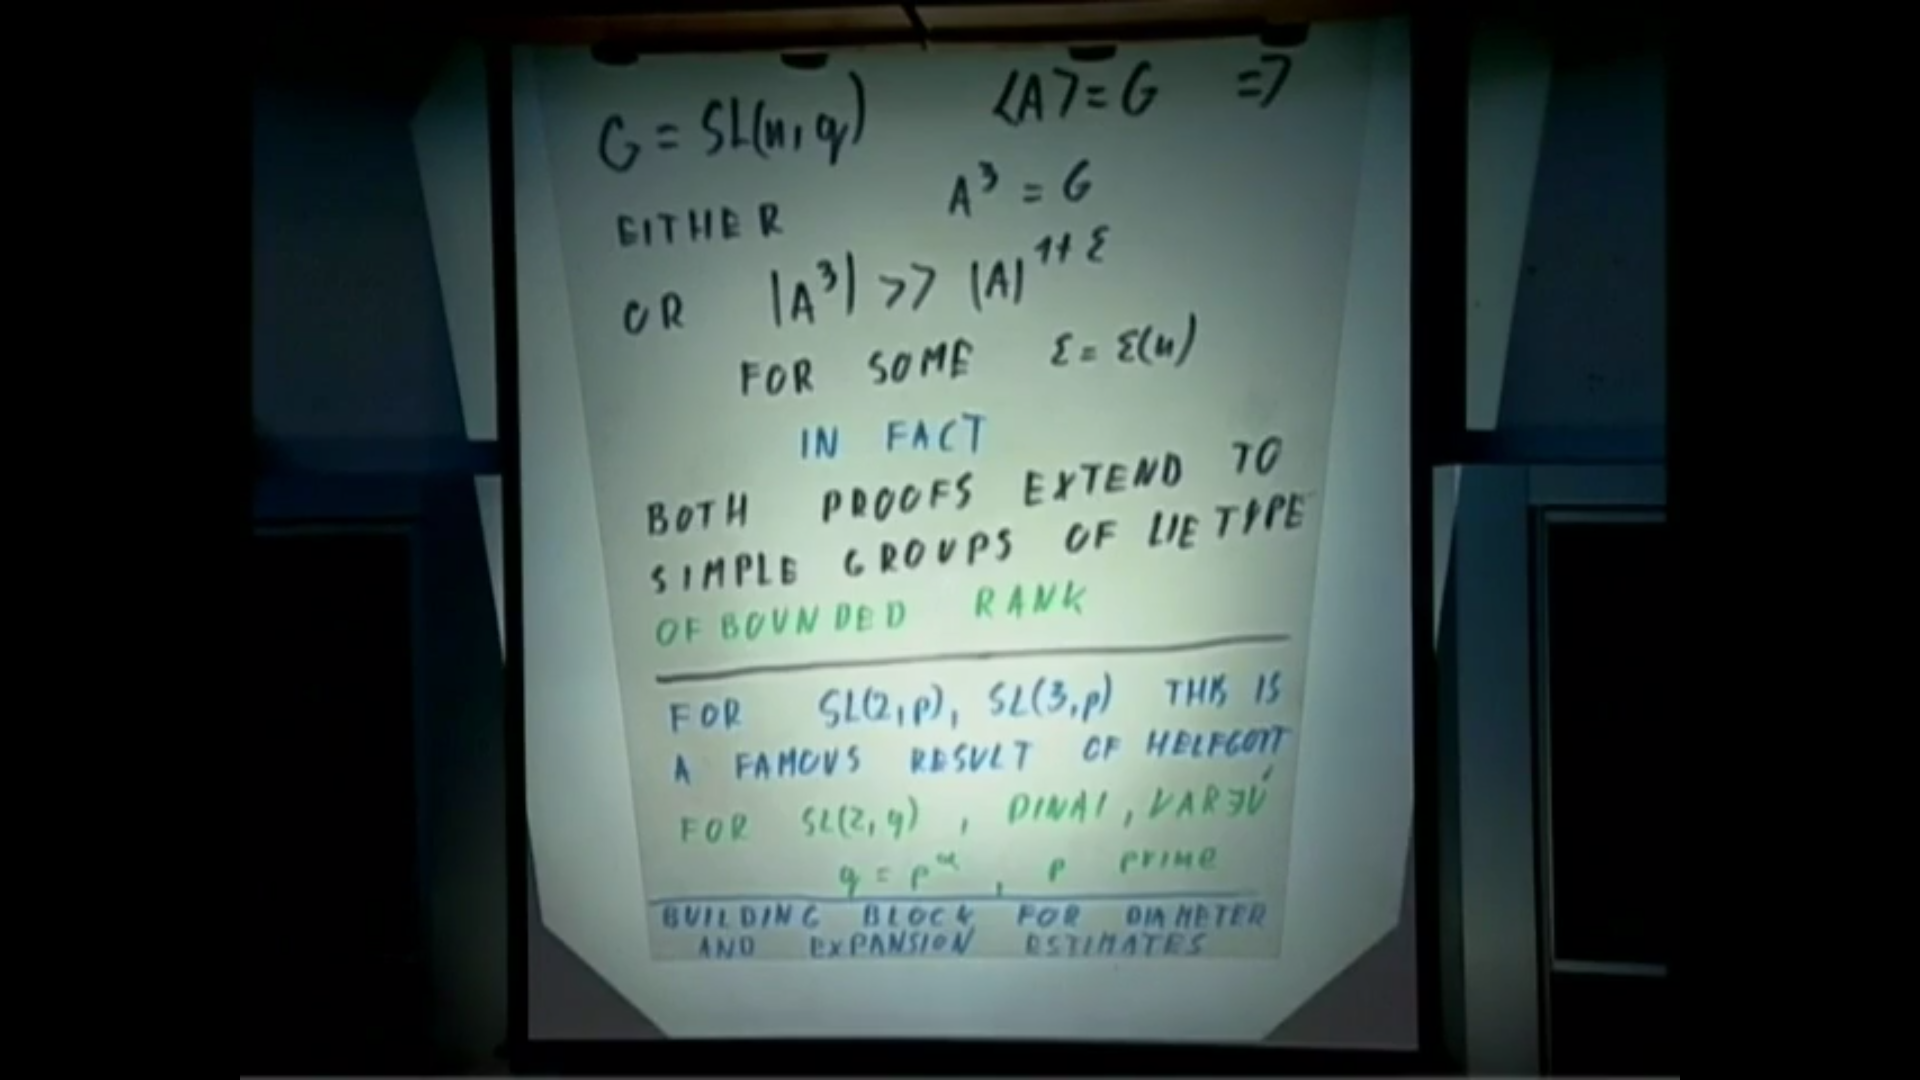 G = SL(n, q) <A> = G =>
EITHER A³ = G
OR |A³| >> |A|^{1+ε}
FOR SOME ε = ε(n)
IN FACT
BOTH PROOFS EXTEND TO
SIMPLE GROUPS OF LIE TYPE
OF BOUNDED RANK
FOR SL(2,p), SL(3,p) THIS IS
A FAMOUS RESULT OF HELFGOTT
FOR SL(2,q), DINAI, VARJÚ
q = p^α, p prime
BUILDING BLOCK FOR DIAMETER
AND EXPANSION ESTIMATES